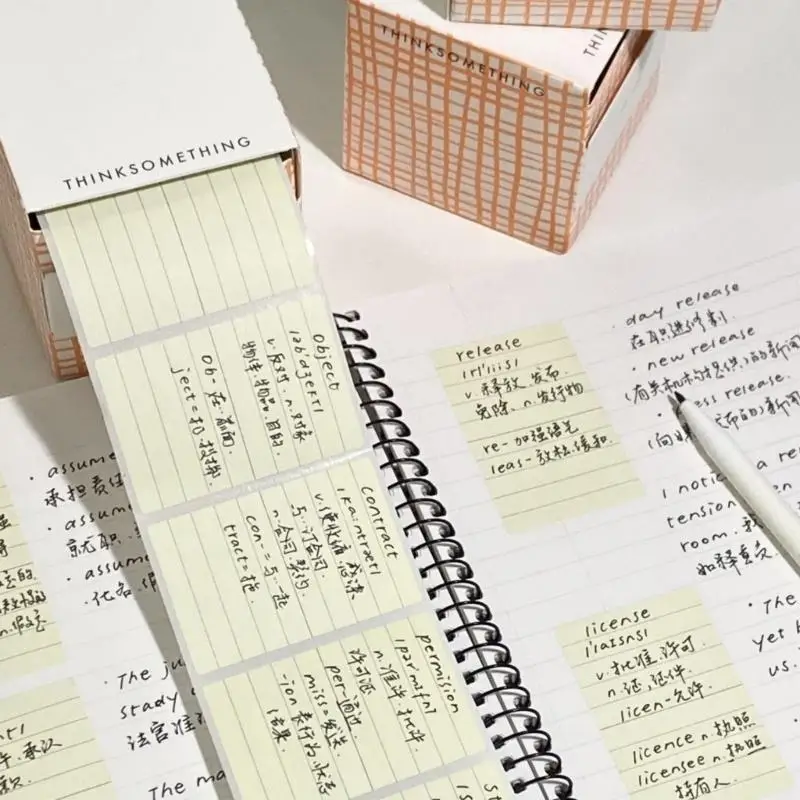 THINKSOMETHING
THINKSOMETHING
THIN
object
v.反对. n.对象
物体.物品.目的.
ob-在..前面.
ject=扔.投掷.
contract
n.合同.契约
con-=与..一起
tract=拖.
permision
n.准许.批许.
许可证
per-通过
miss=发送
-ion 表行为.状态
结果.
· assume
承担责任
· assum
就职.
· assum
·化名.假
The ju
study
法官准
The ma
release
/rɪ'liːs/
v.释放.发布.
免除. n.发行物
re-加强语气
leas-放松.缓和.
· day release
在职进修制.
· new release
(有关机构提供)的新闻
ss release.
布的)新闻
I notic
a re
tension
en
room.
和释
license
/'laɪsns/
v.批准.许可.
n.证.证件
licen-允许.
licence n.执照
licensee n.执照
持有人.
· The
yet b
us.